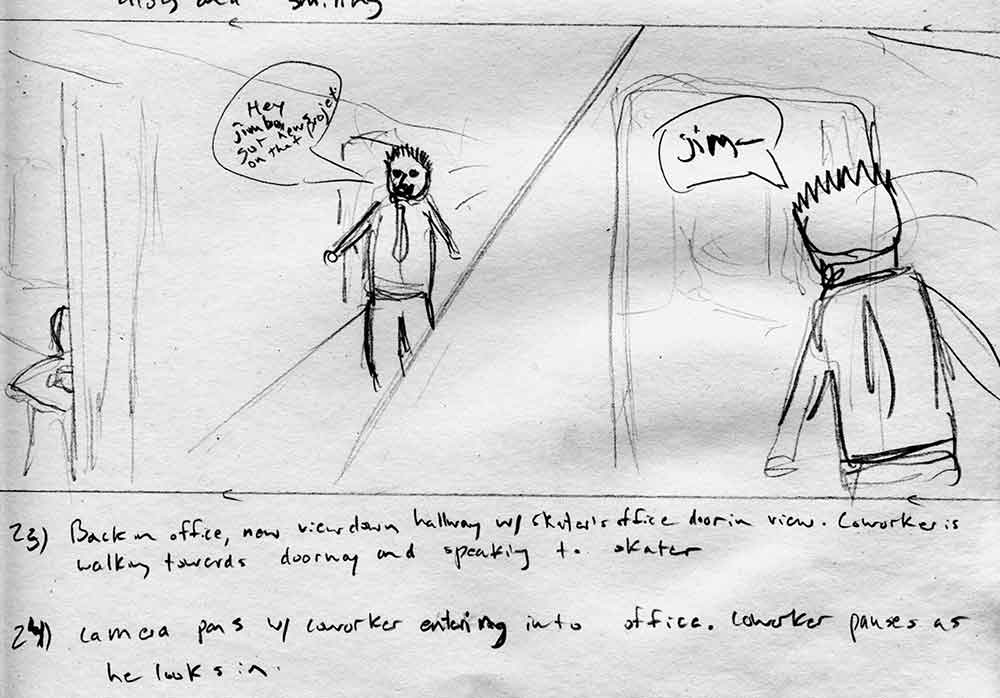 and smiling
Hey
jimbo
got news
on that project.
jim-
23) Back in office, new view down hallway w/ skater's office door in view. Coworker is
walking towards doorway and speaking to skater
24) Camera pans w/ coworker entering into office. Coworker pauses as
he looks in.